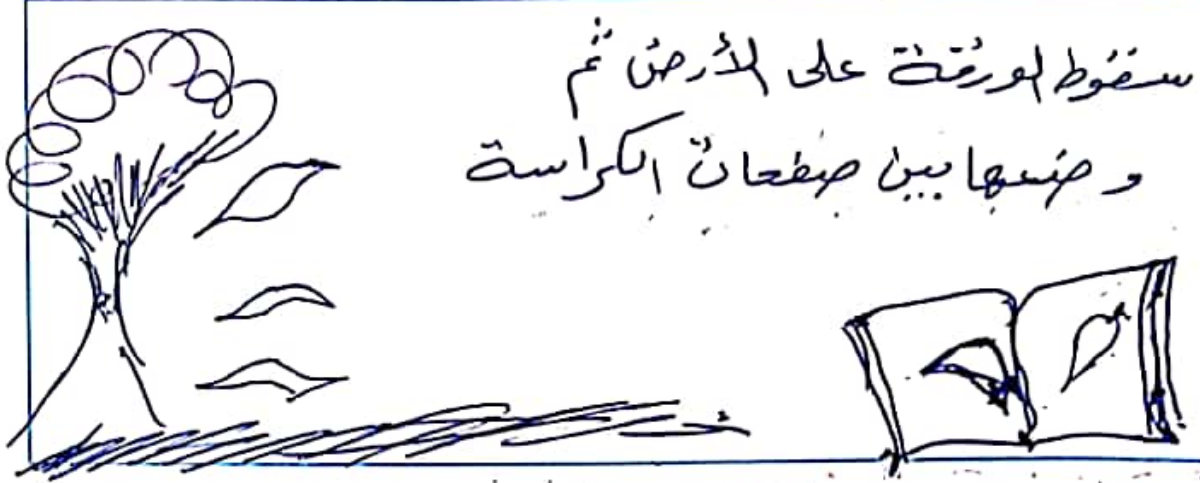 سقوط الورقة على الأرض ثم
وضعها بين صفحات الكراسة